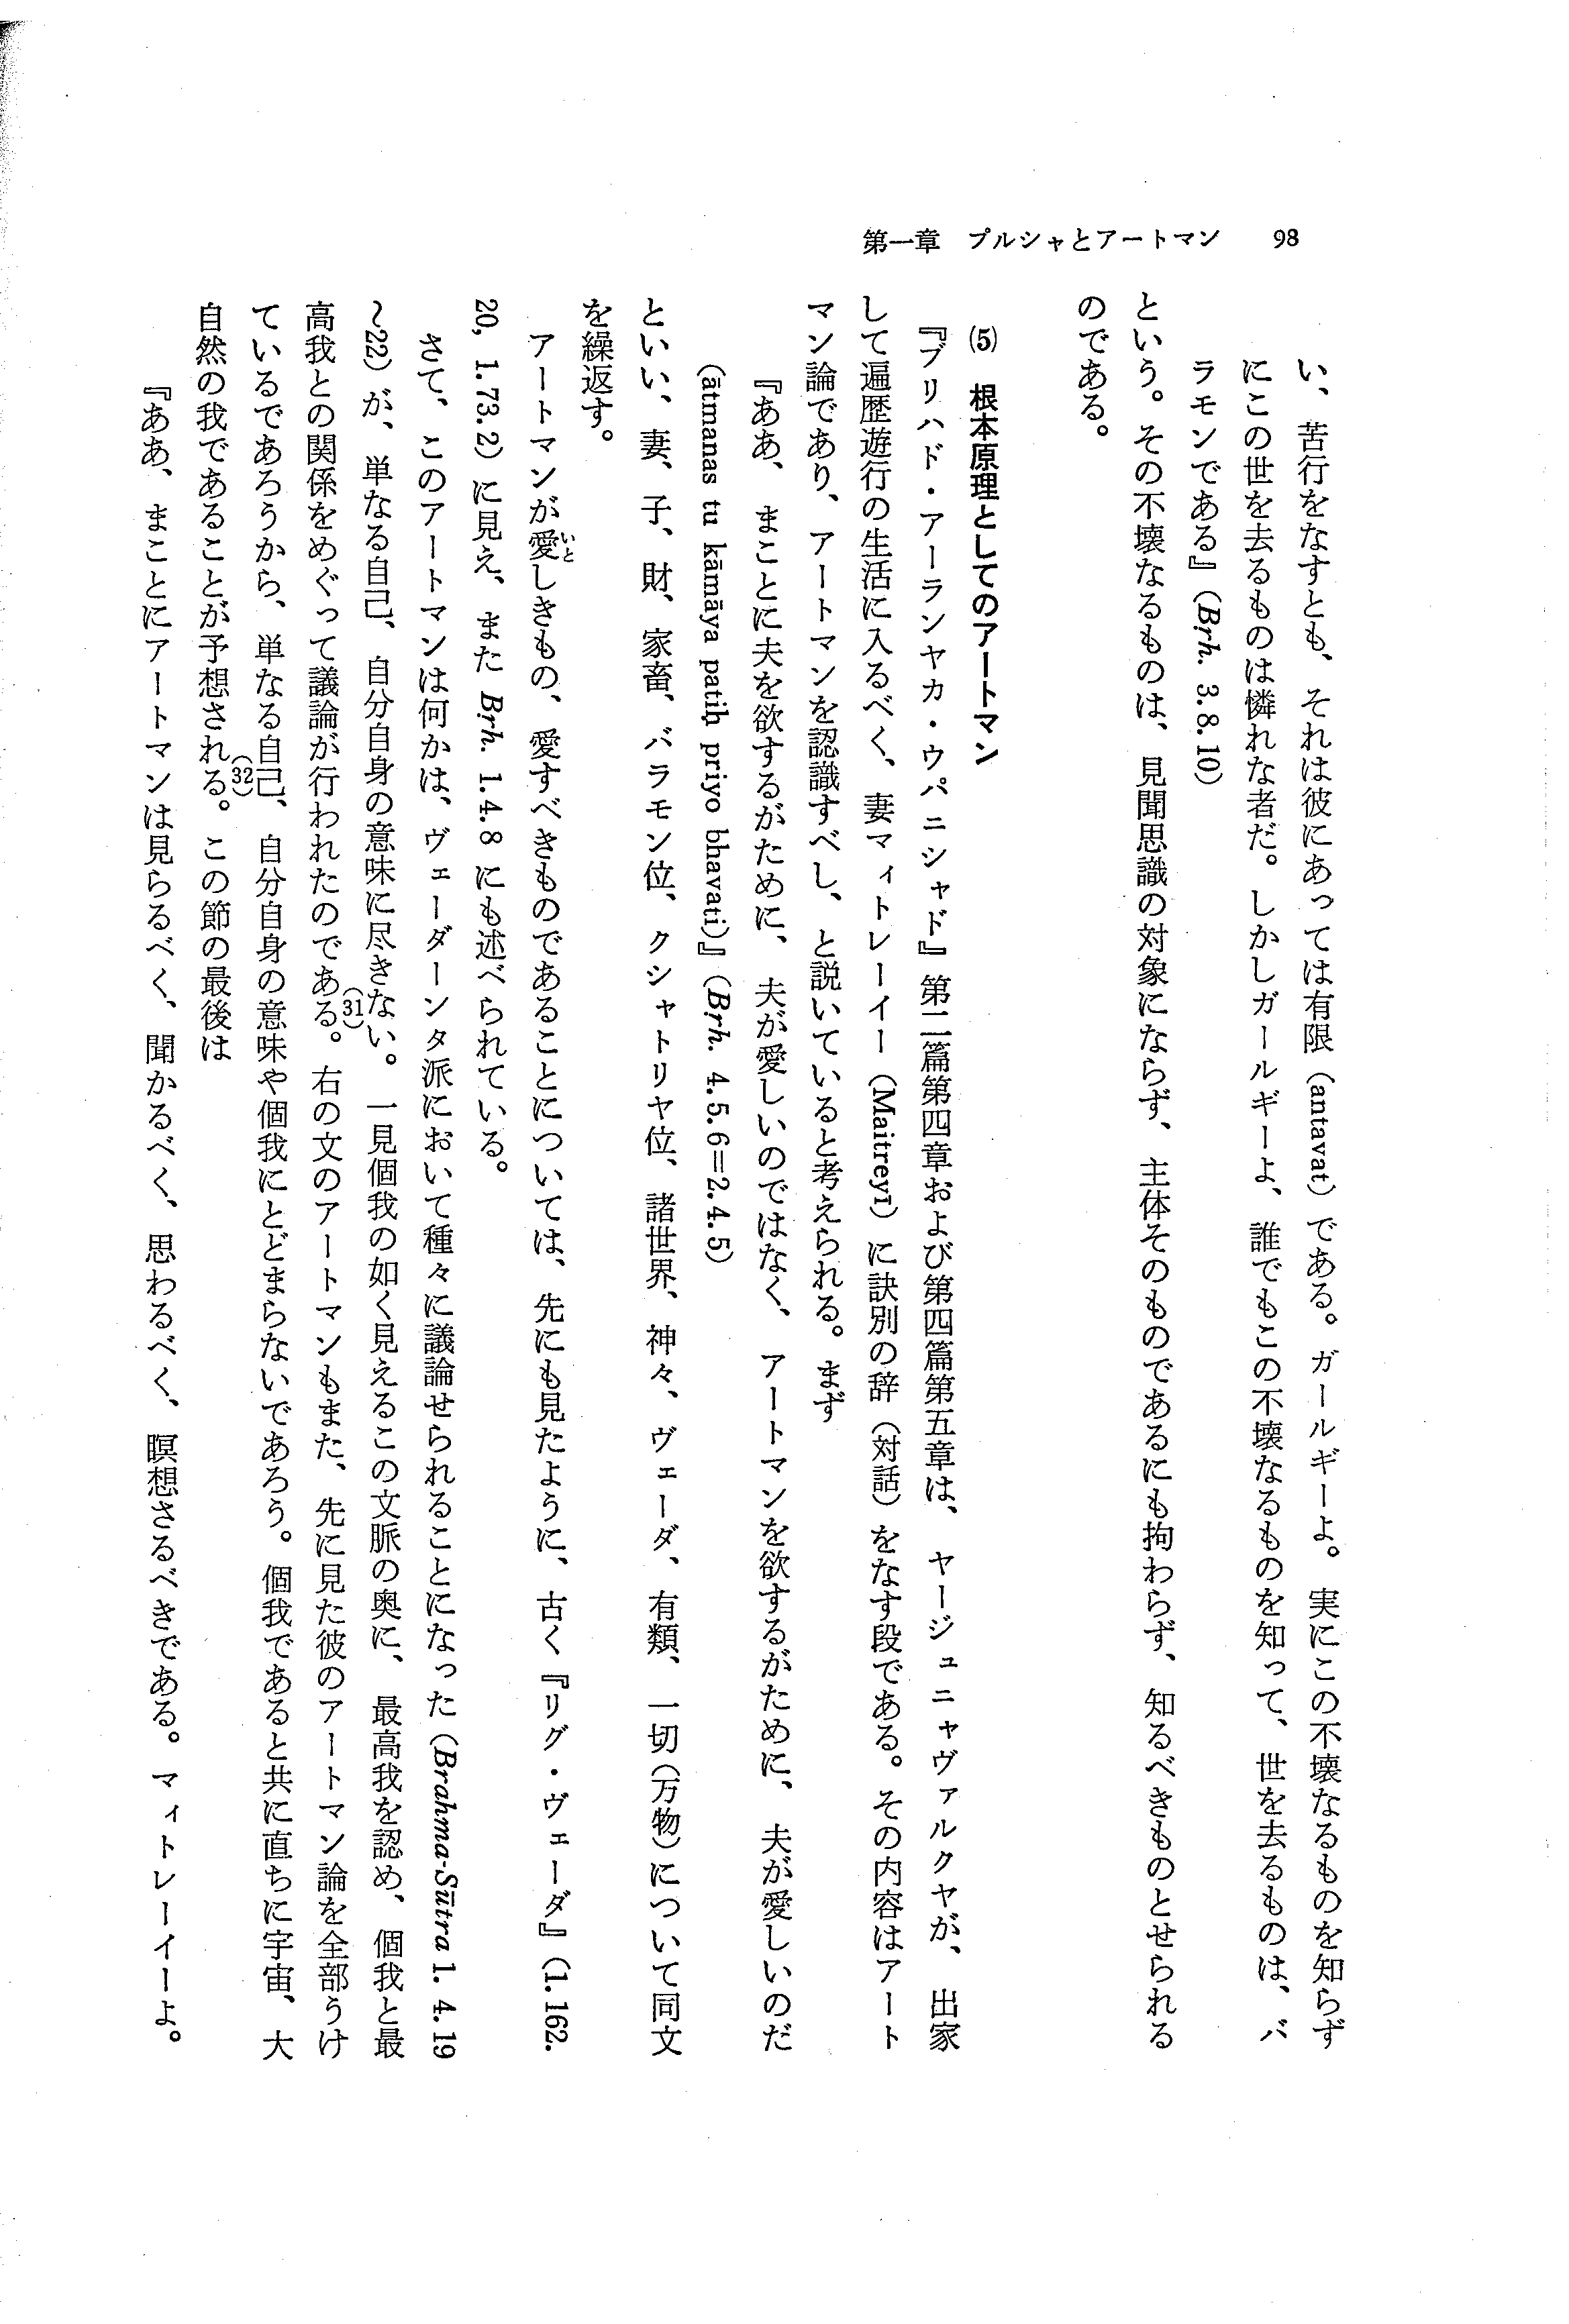 第一章　プルシャとアートマン　98
い、苦行をなすとも、それは彼にあっては有限（antavat）である。ガールギーよ。実にこの不壊なるものを知らず
にこの世を去るものは憐れな者だ。しかしガールギーよ、誰でもこの不壊なるものを知って、世を去るものは、バ
ラモンである』（Bṛh. 3.8.10）
という。その不壊なるものは、見聞思識の対象にならず、主体そのものであるにも拘わらず、知るべきものとせられる
のである。
(5)　根本原理としてのアートマン
『ブリハド・アーランヤカ・ウパニシャド』第二篇第四章および第四篇第五章は、ヤージュニャヴァルクヤが、出家
して遍歴遊行の生活に入るべく、妻マィトレーイー（Maitreyī）に訣別の辞（対話）をなす段である。その内容はアート
マン論であり、アートマンを認識すべし、と説いていると考えられる。まず
『ああ、まことに夫を欲するがために、夫が愛しいのではなく、アートマンを欲するがために、夫が愛しいのだ
（ātmanas tu kāmāya patiḥ priyo bhavati）』（Bṛh. 4.5.6=2.4.5）
といい、妻、子、財、家畜、バラモン位、クシャトリヤ位、諸世界、神々、ヴェーダ、有類、一切（万物）について同文
を繰返す。
アートマンが愛しきもの、愛すべきものであることについては、先にも見たように、古く『リグ・ヴェーダ』（1.162.
いと
20, 1.73.2）に見え、また Bṛh. 1.4.8 にも述べられている。
さて、このアートマンは何かは、ヴェーダーンタ派において種々に議論せられることになった（Brahma-Sūtra 1. 4. 19
〜22）が、単なる自己、自分自身の意味に尽きない。一見個我の如く見えるこの文脈の奥に、最高我を認め、個我と最
（31）
高我との関係をめぐって議論が行われたのである。右の文のアートマンもまた、先に見た彼のアートマン論を全部うけ
ているであろうから、単なる自己、自分自身の意味や個我にとどまらないであろう。個我であると共に直ちに宇宙、大
（32）
自然の我であることが予想される。この節の最後は
『ああ、まことにアートマンは見らるべく、聞かるべく、思わるべく、瞑想さるべきである。マィトレーイーよ。